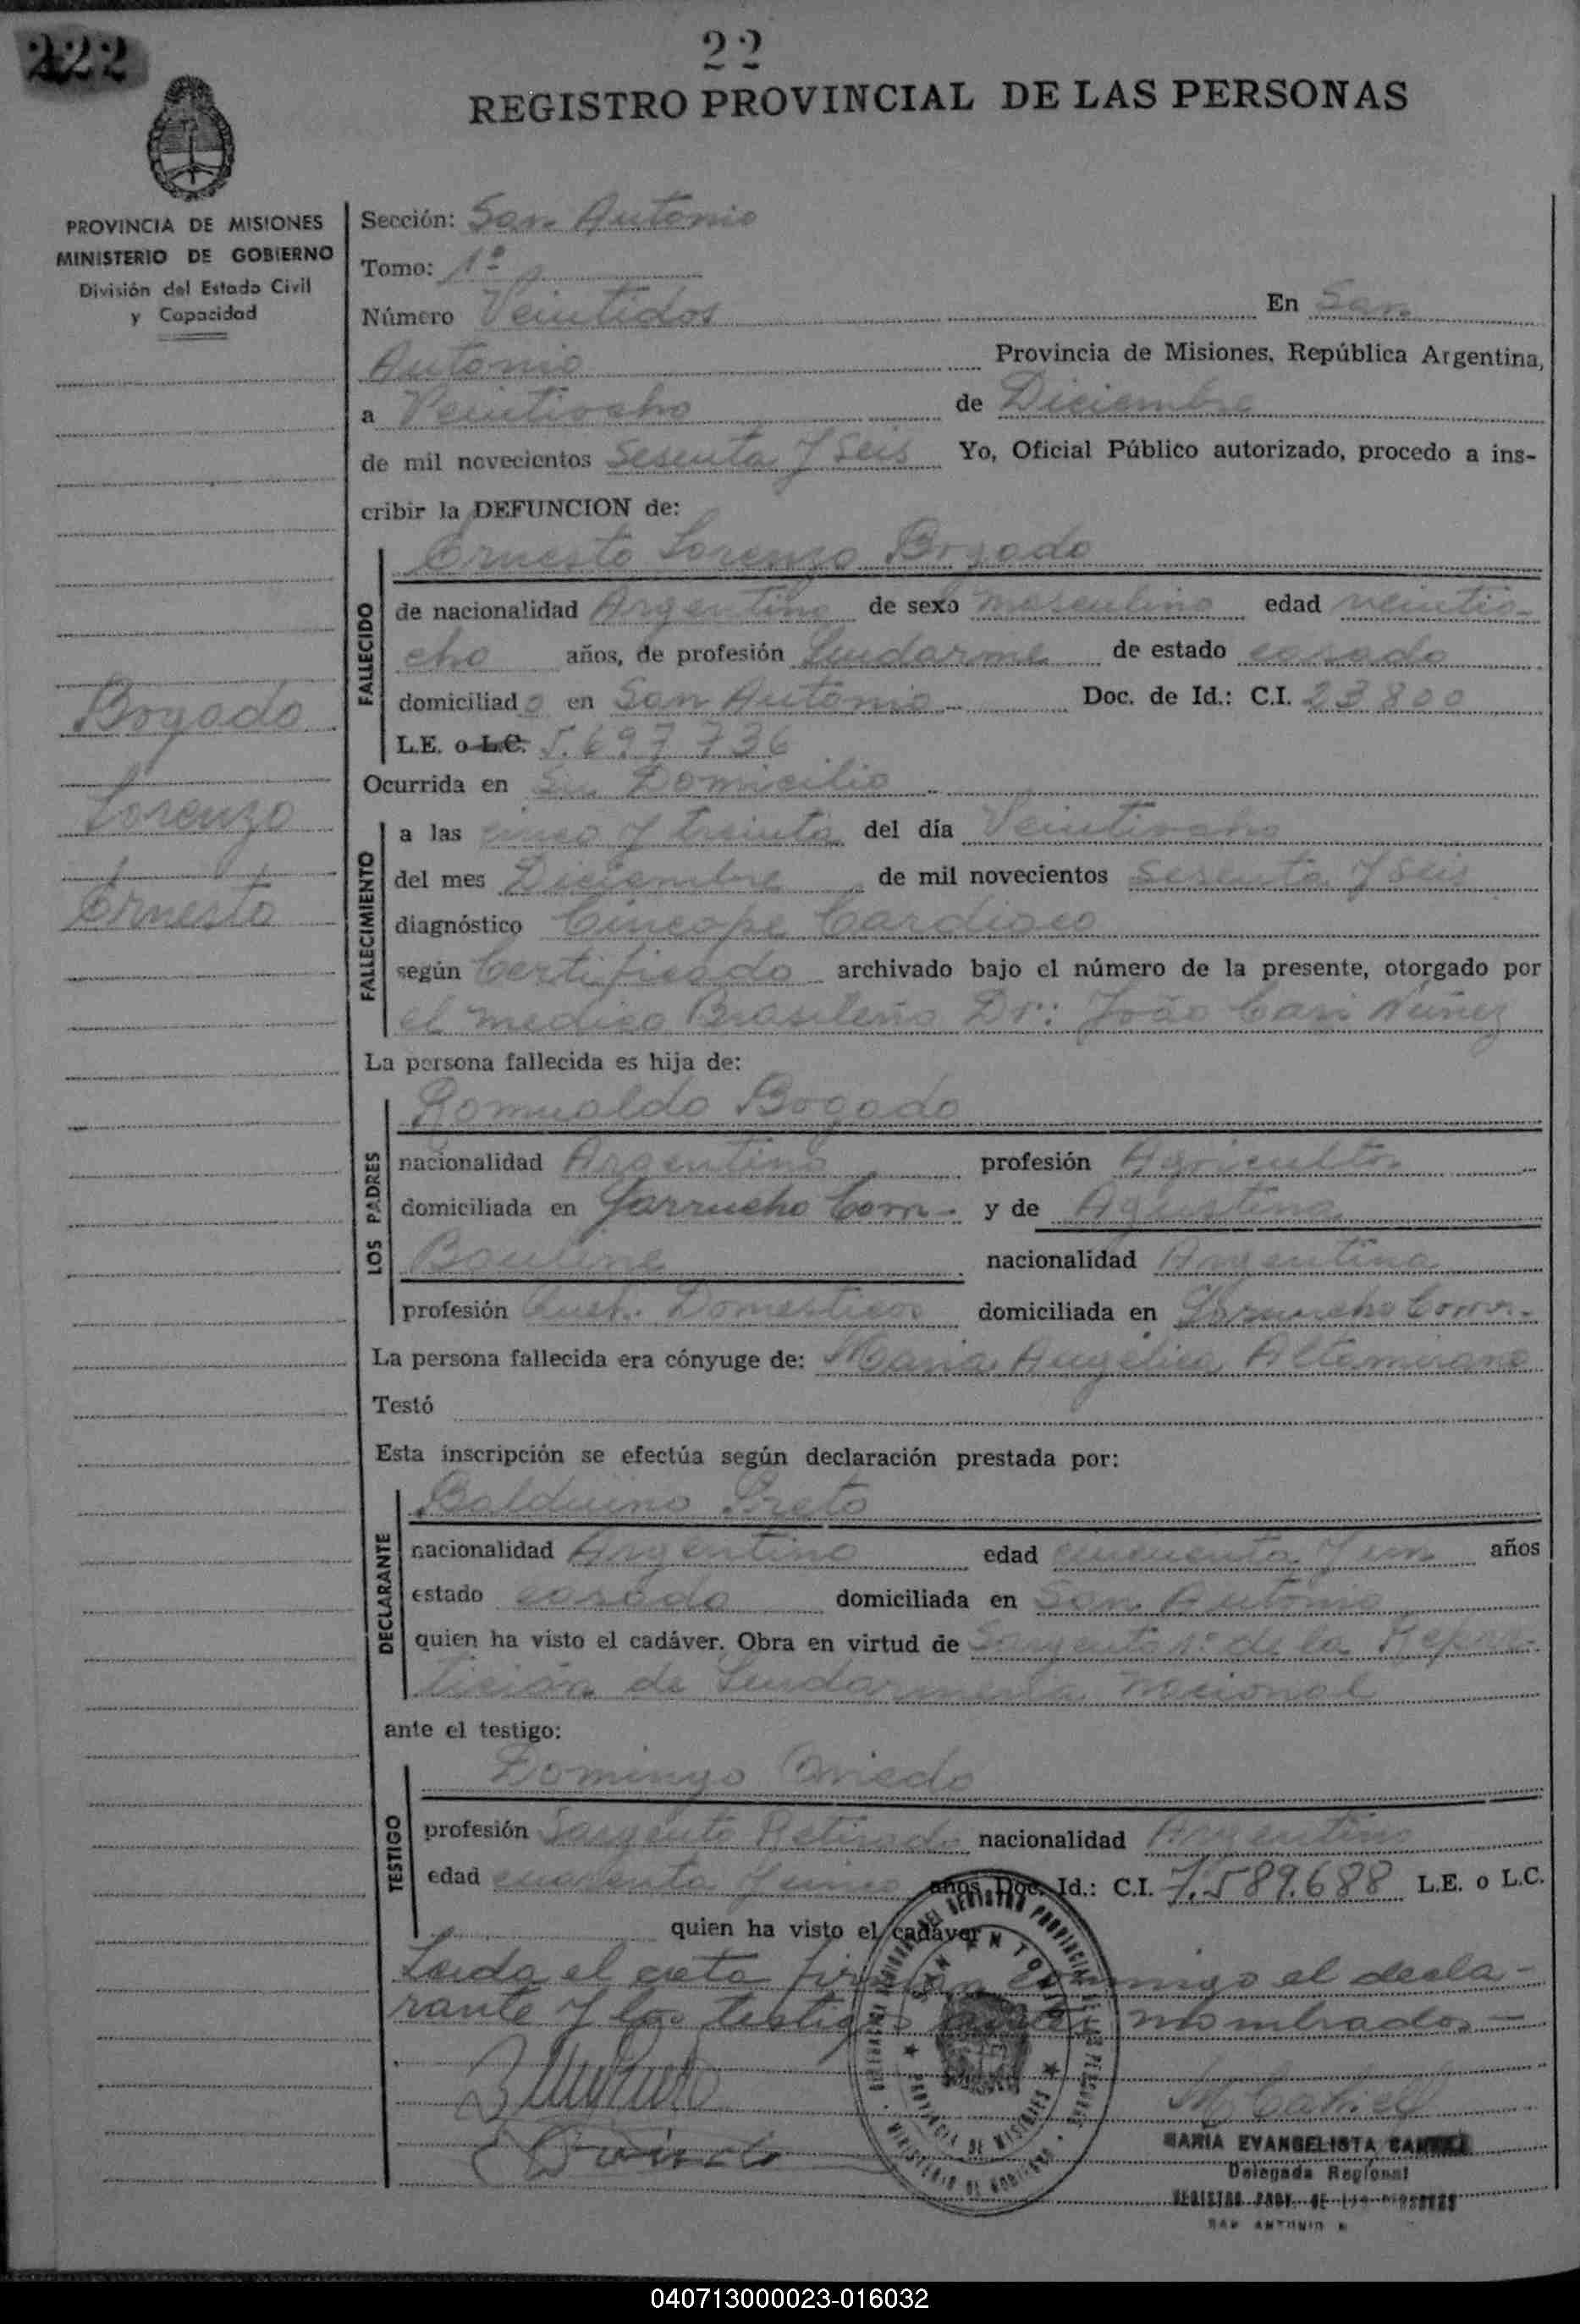 222
22
REGISTRO PROVINCIAL DE LAS PERSONAS
PROVINCIA DE MISIONES
MINISTERIO DE GOBIERNO
División del Estado Civil
y Capacidad
Sección: San Antonio
Tomo: 1º
Número Veintidos En San
Antonio Provincia de Misiones, República Argentina,
a Veintiocho de Diciembre
de mil novecientos Sesenta y Seis Yo, Oficial Público autorizado, procedo a ins-
cribir la DEFUNCION de:
Ernesto Lorenzo Bogado
FALLECIDO
de nacionalidad Argentino de sexo masculino edad veintio-
cho años, de profesión Gendarme de estado casado
domiciliado en San Antonio Doc. de Id.: C.I. 23800
L.E. o L.C. 5.697.736
Bogado
Lorenzo
Ernesto
Ocurrida en Su Domicilio
FALLECIMIENTO
a las cinco y treinta del día Veintiocho
del mes Diciembre de mil novecientos Sesenta y Seis
diagnóstico Cincope Cardiaco
según Certificado archivado bajo el número de la presente, otorgado por
el medico Brasileño Dr: João Núñez
La persona fallecida es hija de:
LOS PADRES
Romualdo Bogado
nacionalidad Argentino profesión Agricultor
domiciliada en Garrucho Corr.- y de Agustina
nacionalidad Argentina
profesión Domesticos domiciliada en Garrucho Corr.-
La persona fallecida era cónyuge de: Maria Angelica Altamirano
Testó
Esta inscripción se efectúa según declaración prestada por:
DECLARANTE
Balduino Preto
nacionalidad Argentino edad cincuenta y un años
estado casado domiciliada en San Antonio
quien ha visto el cadáver. Obra en virtud de Sargento 1º de la Repar-
tición de Gendarmeria Nacional
ante el testigo:
TESTIGO
Domingo Oviedo
profesión Sargento Retirado nacionalidad Argentino
edad cuarenta y cinco años Doc. Id.: C.I. 7.589.688 L.E. o L.C.
quien ha visto el cadáver
Leida el acta firman conmigo el decla-
rante y los testigos nombrados -
SAN ANTONIO
PROVINCIA DE MISIONES
MINISTERIO DE GOBIERNO
MARIA EVANGELISTA
Delegada Regional
REGISTRO PROV. DE LAS PERSONAS
SAN ANTONIO
040713000023-016032